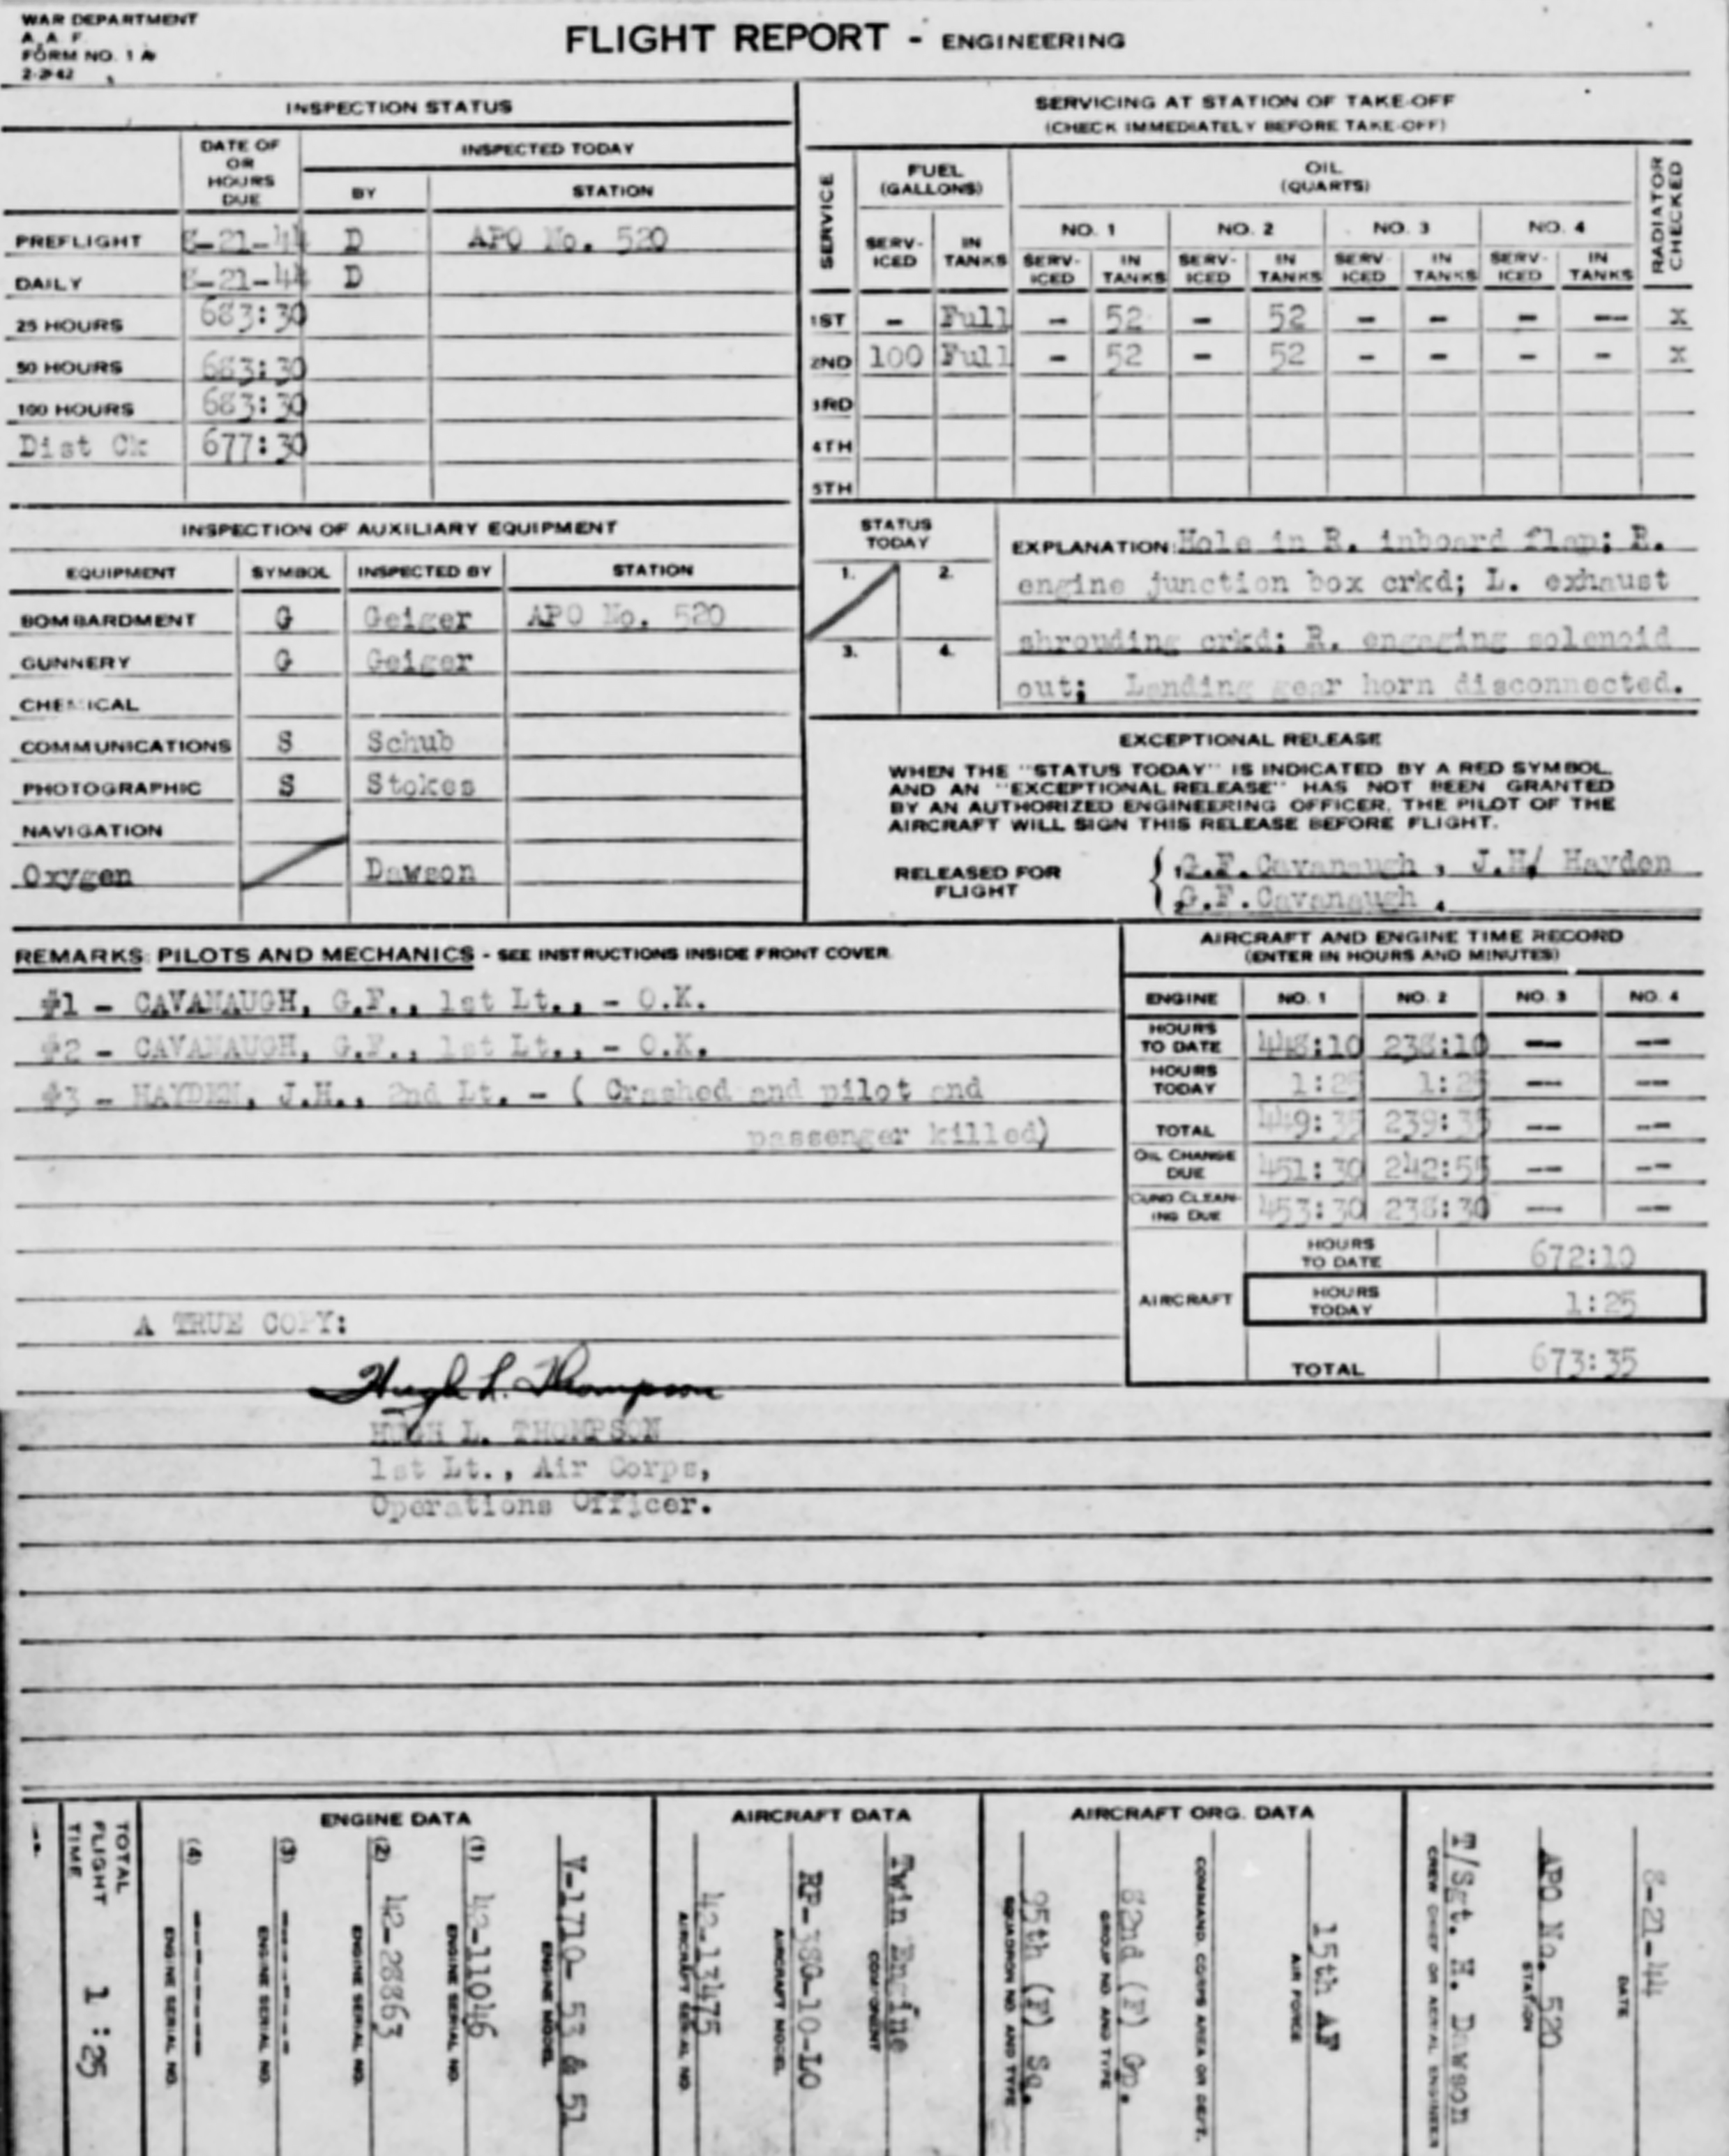 WAR DEPARTMENT
A. A. F.
FORM NO. 1 A
2-2-42
FLIGHT REPORT - ENGINEERING
INSPECTION STATUS
DATE OF OR HOURS DUE
INSPECTED TODAY
BY STATION
PREFLIGHT 8-21-44 D APO No. 520
DAILY 8-21-44 D
25 HOURS 683:30
50 HOURS 683:30
100 HOURS 683:30
Dist Ck 677:30
SERVICING AT STATION OF TAKE-OFF
(CHECK IMMEDIATELY BEFORE TAKE-OFF)
SERVICE
FUEL (GALLONS)
OIL (QUARTS)
RADIATOR CHECKED
NO. 1 NO. 2 NO. 3 NO. 4
SERV-ICED IN TANKS SERV-ICED IN TANKS SERV-ICED IN TANKS SERV-ICED IN TANKS SERV-ICED IN TANKS
1ST - Full - 52 - 52 - - - -- X
2ND 100 Full - 52 - 52 - - - - X
3RD
4TH
5TH
INSPECTION OF AUXILIARY EQUIPMENT
EQUIPMENT SYMBOL INSPECTED BY STATION
BOMBARDMENT G Geiger APO No. 520
GUNNERY G Geiger
CHEMICAL
COMMUNICATIONS S Schub
PHOTOGRAPHIC S Stokes
NAVIGATION
Oxygen / Dawson
STATUS TODAY
1. 2.
3. 4.
EXPLANATION: Hole in R. inboard flap; R.
engine junction box crkd; L. exhaust
shrouding crkd; R. engaging solenoid
out; Landing gear horn disconnected.
EXCEPTIONAL RELEASE
WHEN THE "STATUS TODAY" IS INDICATED BY A RED SYMBOL,
AND AN "EXCEPTIONAL RELEASE" HAS NOT BEEN GRANTED
BY AN AUTHORIZED ENGINEERING OFFICER, THE PILOT OF THE
AIRCRAFT WILL SIGN THIS RELEASE BEFORE FLIGHT.
RELEASED FOR FLIGHT
1. G.F. Cavanaugh , J.H/ Hayden
2. G.F. Cavanaugh 4.
REMARKS: PILOTS AND MECHANICS - SEE INSTRUCTIONS INSIDE FRONT COVER
#1 - CAVANAUGH, G.F., 1st Lt., - O.K.
#2 - CAVANAUGH, G.F., 1st Lt., - O.K.
#3 - HAYDEN, J.H., 2nd Lt. - ( Crashed and pilot and
passenger killed)
AIRCRAFT AND ENGINE TIME RECORD
(ENTER IN HOURS AND MINUTES)
ENGINE NO. 1 NO. 2 NO. 3 NO. 4
HOURS TO DATE 448:10 238:10 -- --
HOURS TODAY 1:25 1:25 -- --
TOTAL 449:35 239:35 -- --
OIL CHANGE DUE 451:30 242:55 -- --
CUNO CLEAN-ING DUE 453:30 238:30 -- --
AIRCRAFT
HOURS TO DATE 672:10
HOURS TODAY 1:25
TOTAL 673:35
A TRUE COPY:
Hugh L. Thompson
HUGH L. THOMPSON
1st Lt., Air Corps,
Operations Officer.
TOTAL FLIGHT TIME 1:25
ENGINE DATA
(4) ------ ENGINE SERIAL NO.
(3) ------ ENGINE SERIAL NO.
(2) 42-28863 ENGINE SERIAL NO.
(1) 42-11046 ENGINE SERIAL NO.
V-1710- 53 & 51 ENGINE MODEL
AIRCRAFT DATA
42-13475 AIRCRAFT SERIAL NO.
RP-38G-10-LO AIRCRAFT MODEL
Twin Engine COMPONENT
AIRCRAFT ORG. DATA
95th (F) Sq. SQUADRON NO. AND TYPE
82nd (F) Gp. GROUP NO. AND TYPE
COMMAND, CORPS AREA OR DEPT.
15th AF AIR FORCE
T/Sgt. H. Dawson CREW CHIEF OR AERIAL ENGINEER
APO No. 520 STATION
8-21-44 DATE